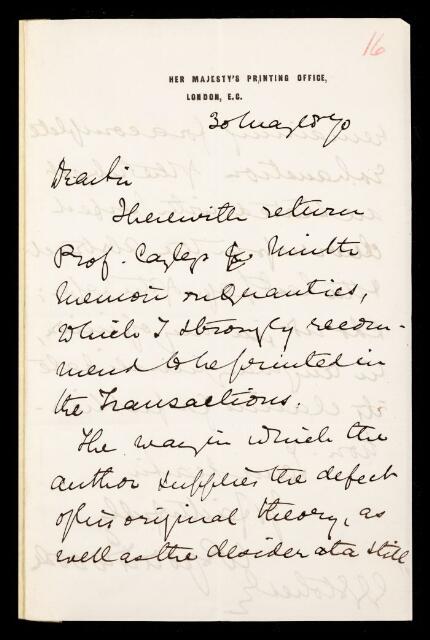 16
HER MAJESTY'S PRINTING OFFICE,
LONDON, E.C.
30 May 1870
Dear Sir
I herewith return
Prof. Cayley's Ninth
Memoir on Quantics,
which I strongly recom-
mend to be printed in
the Transactions.
The way in which the
author supplies the defect
of his original theory, as
well as the desiderata still